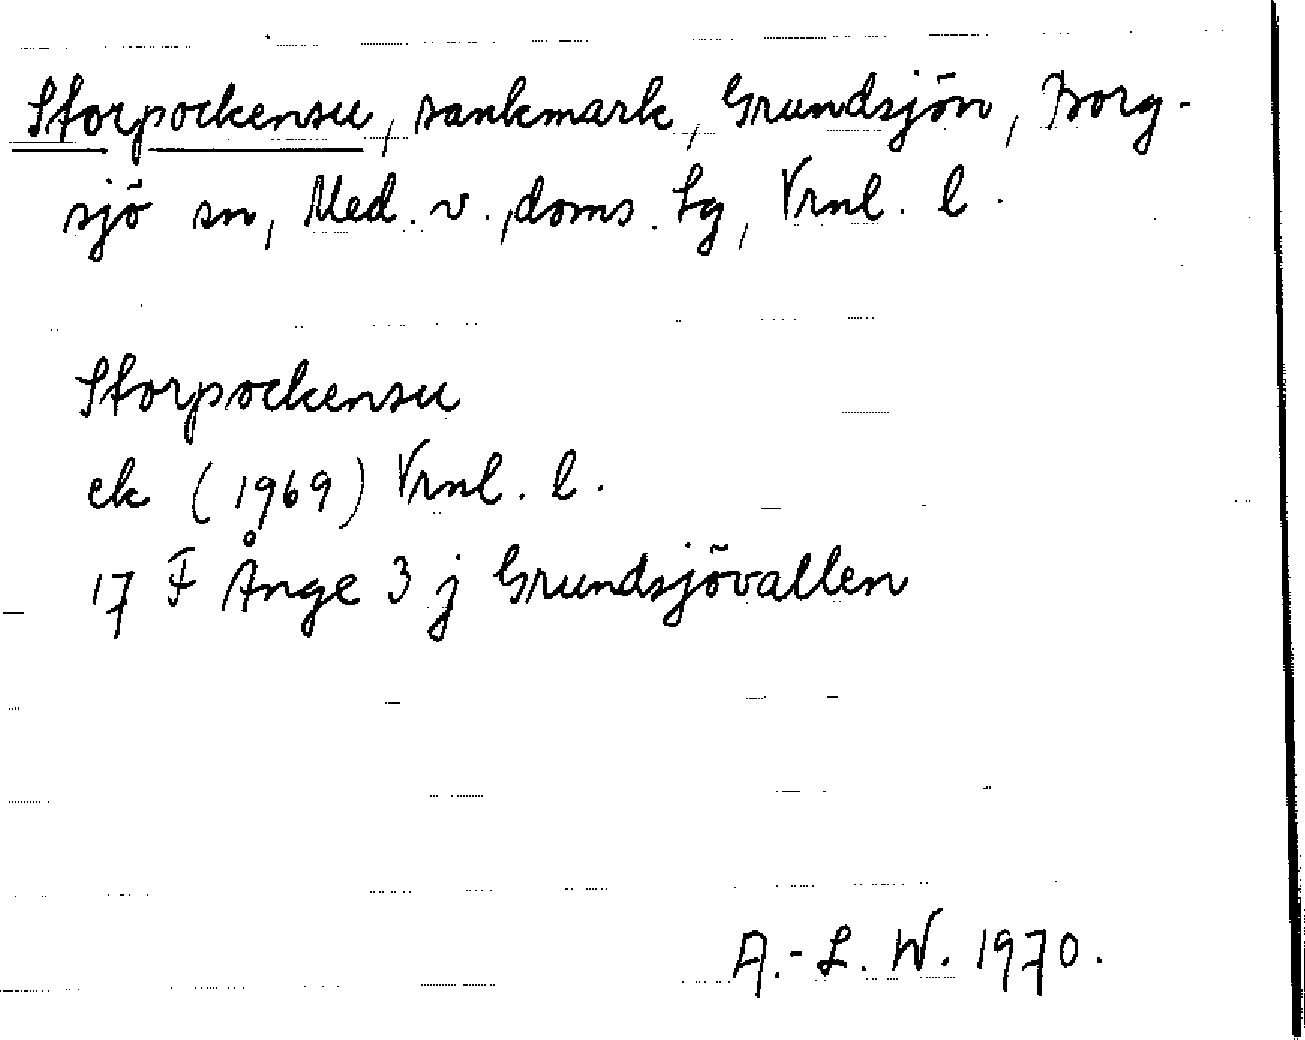 Storpockensu, sankmark, Grundsjön, Borg-
sjö sn, Med. v., doms. Lg, Vrnl. l.
Storpockensu
ek (1969) Vrnl. l.
17 F Ånge 3 j Grundsjövallen
A.-L. W. 1970.